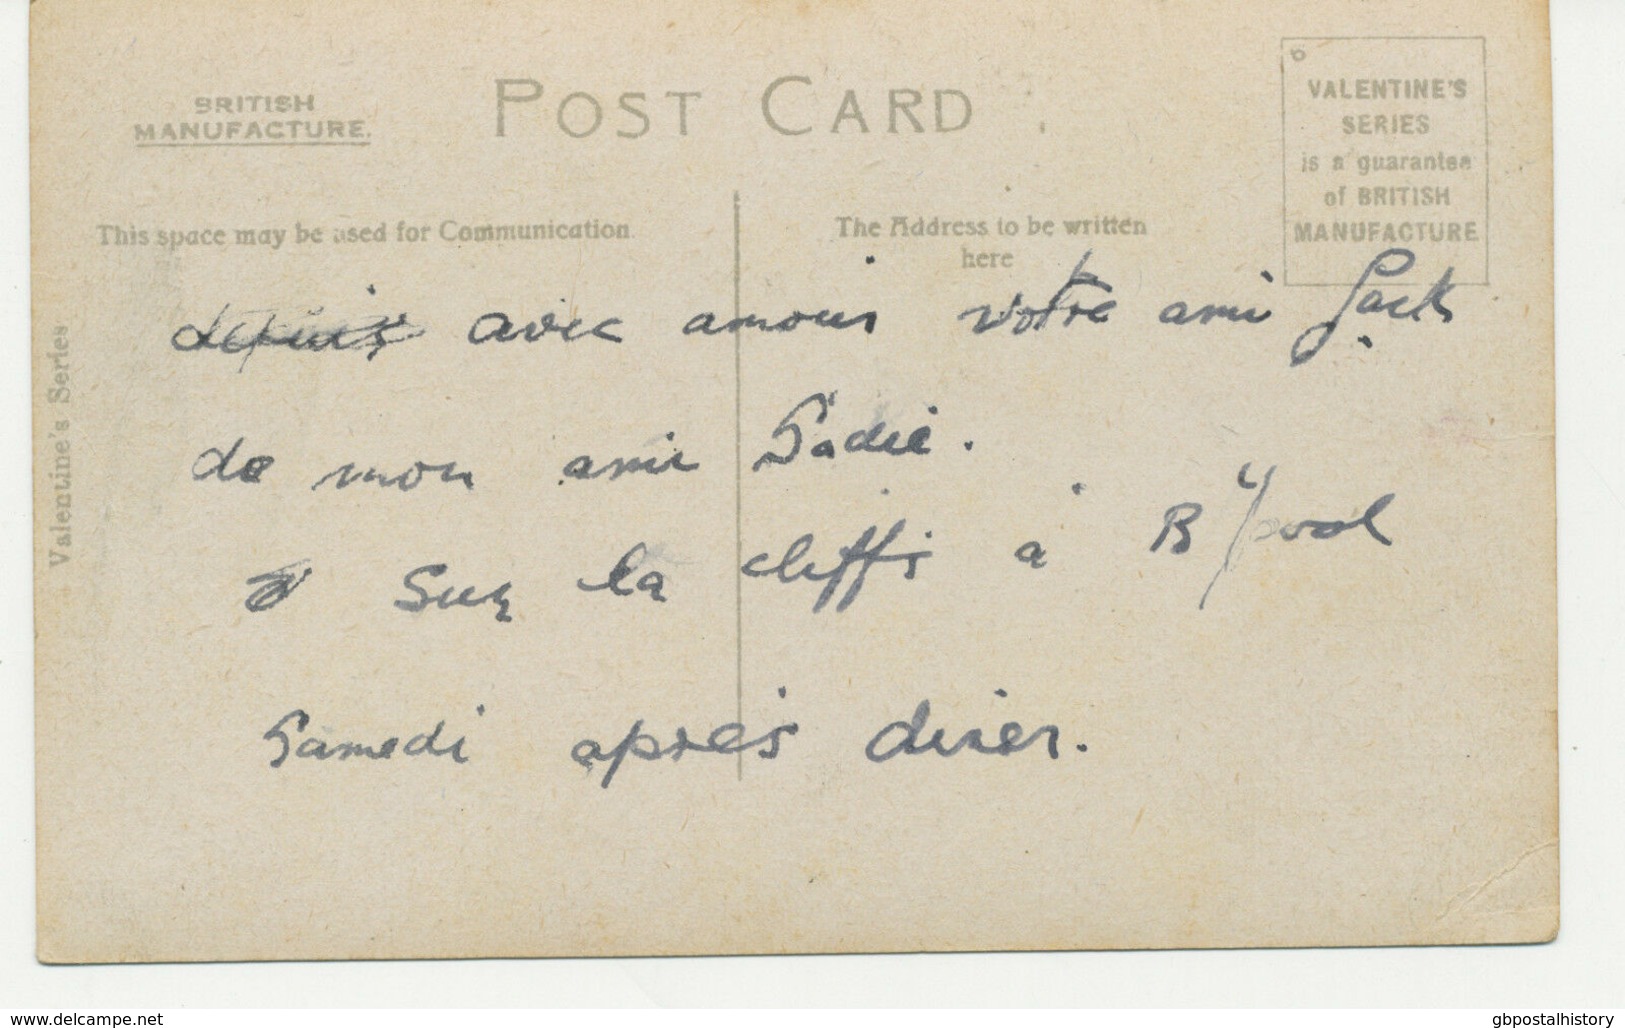 BRITISH
MANUFACTURE.
POST CARD
VALENTINE'S
SERIES
is a guarantee
of BRITISH
MANUFACTURE
This space may be used for Communication
The Address to be written
here
Valentine's Series
depuis avec amour votre ami Jack
de mon ami Sadie.
Sur la cliffs à B'pool
Samedi après diner.
www.delcampe.net
gbpostalhistory